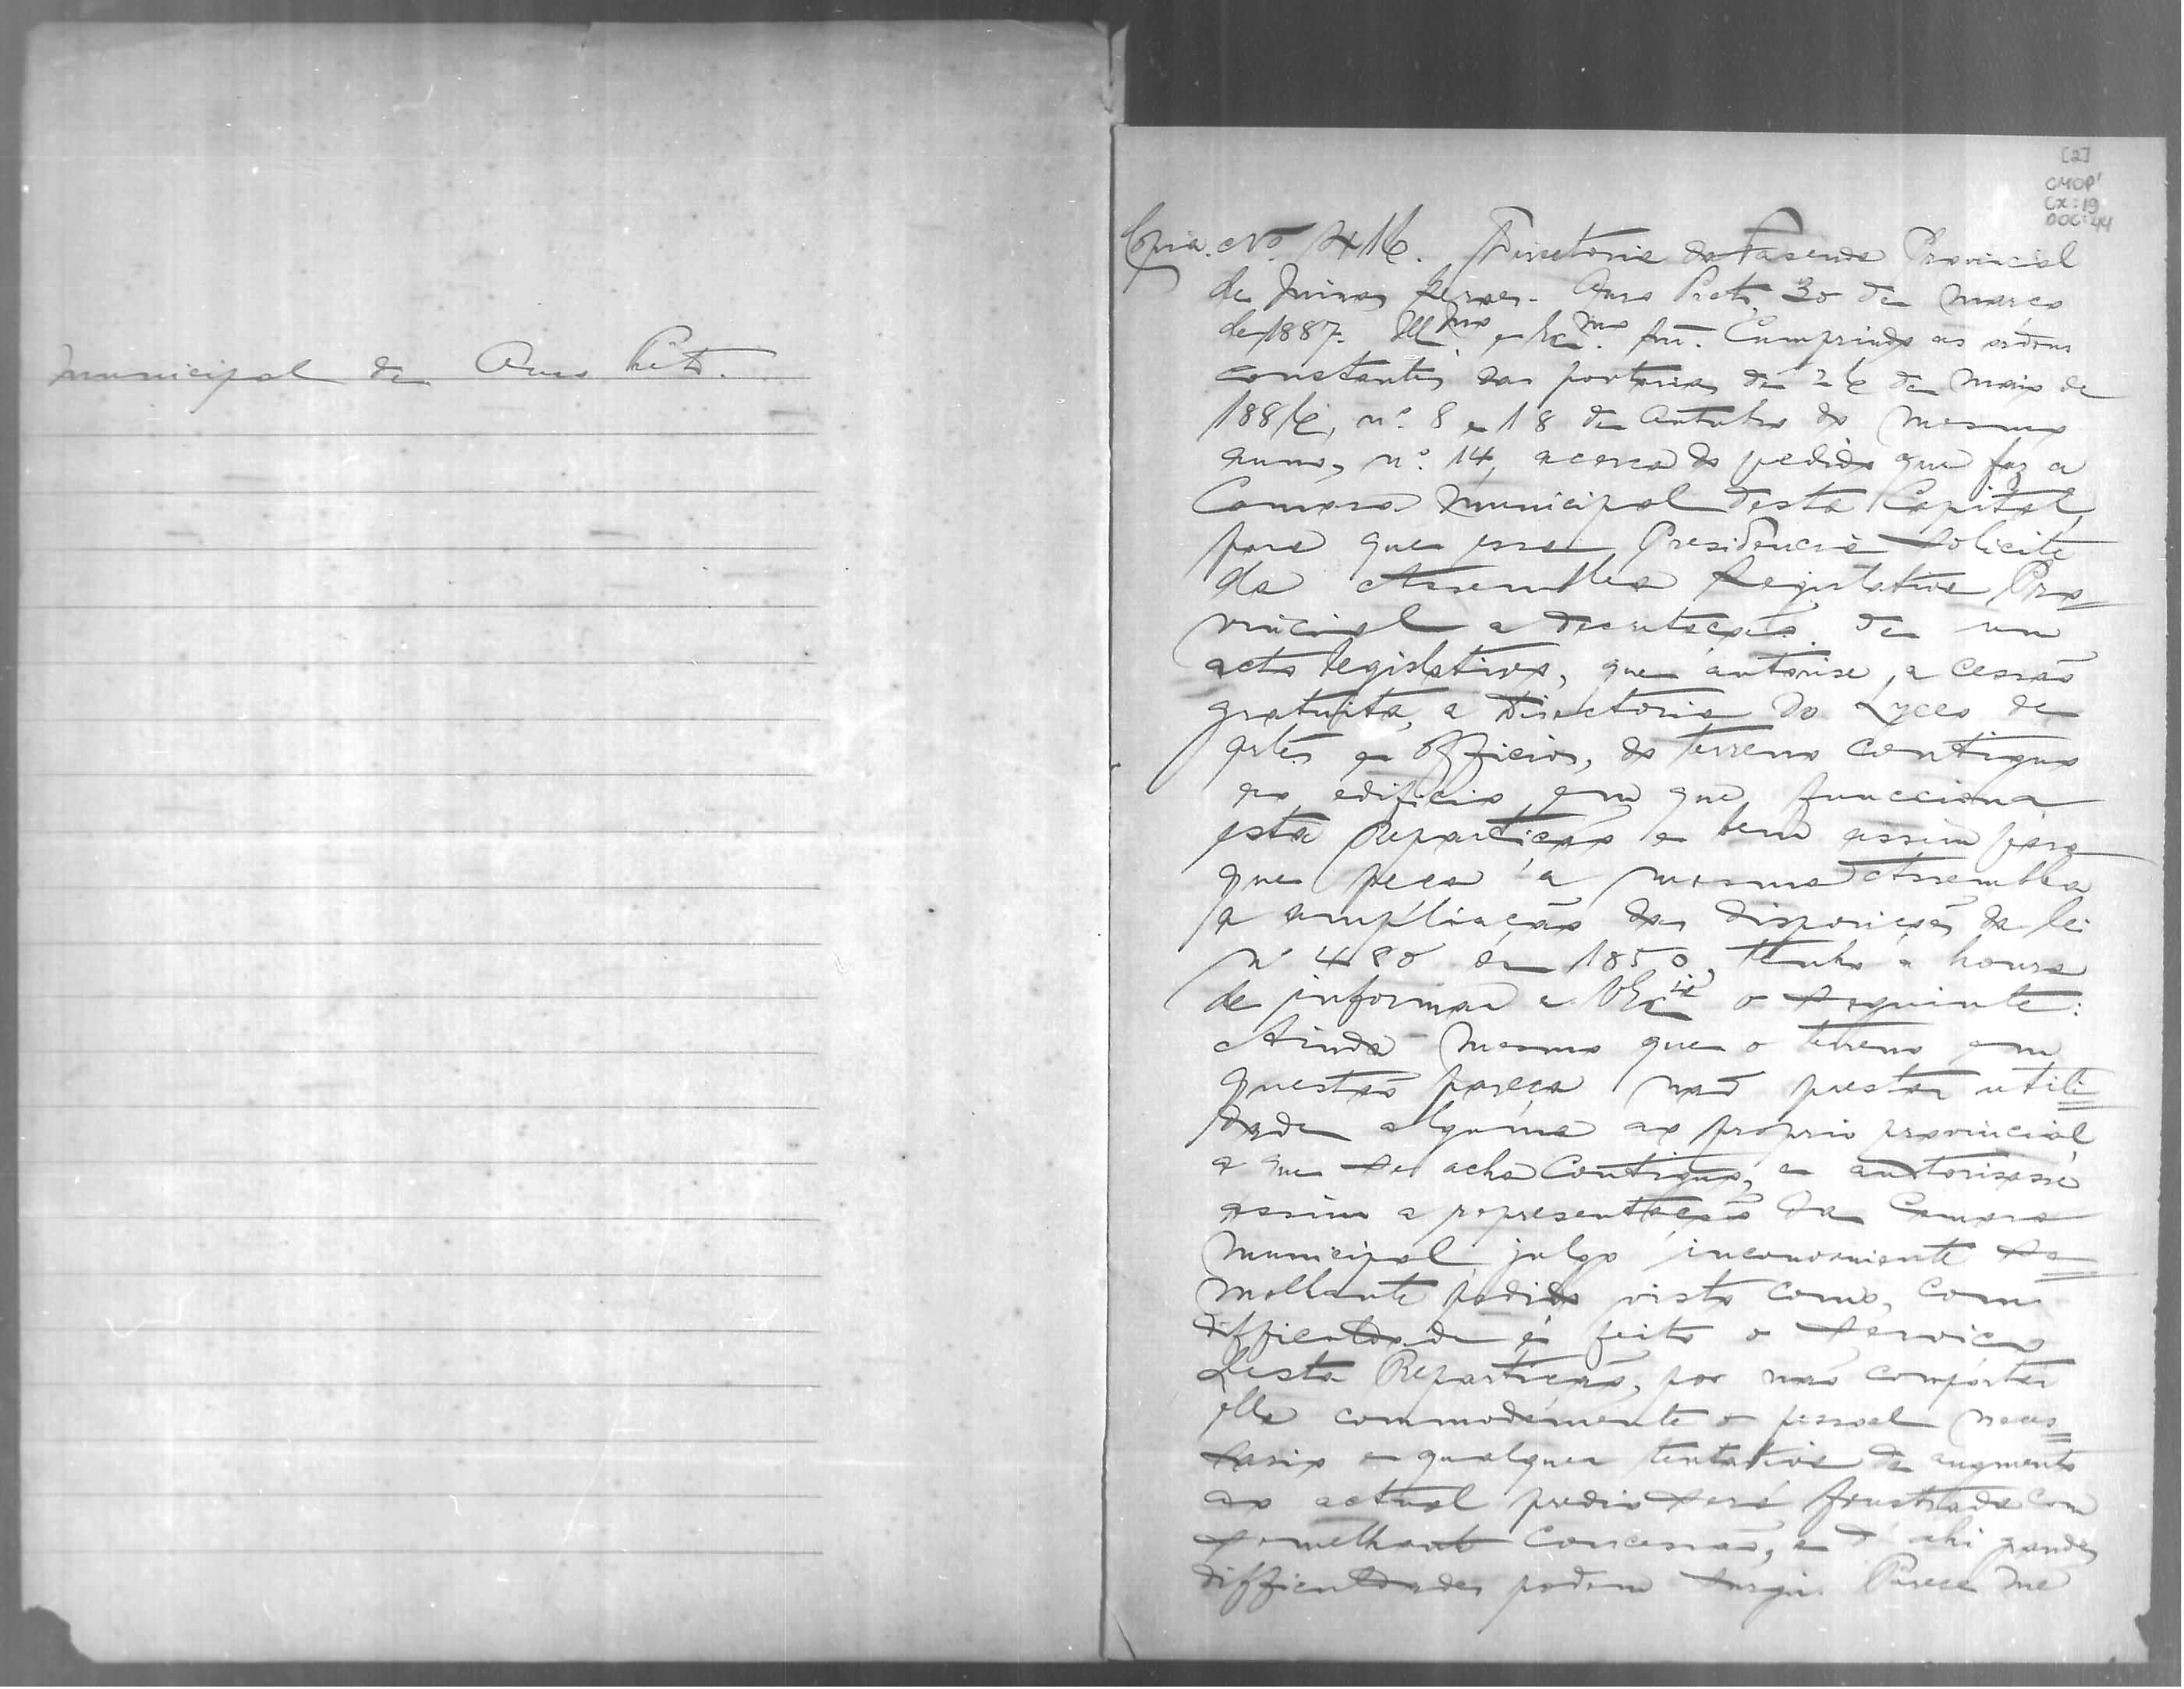 Municipal de Ouro Preto.
[2]
CMOP
CX: 19
DOC: 44
Copia. Nº 416. Directoria da Fasenda Provincial
de Minas Geraes. Ouro Preto, 30 de Março
de 1887. Illmo e Exmo Snr. Cumprindo as ordens
constantes das portarias de 26 de Maio de
1886, nº 8 e 18 de Outubro do mesmo
anno, nº 14, acerca do pedido que faz a
Camara Municipal desta Capital,
para que essa Presidencia solicite
da Assemblea Legislativa Pro=
vincial a decretação de um
acto legislativo, que autorise, a cessão
gratuita, a Directoria do Lyceo de
artes e officios, do terreno contiguo
ao edificio em que funcciona
esta Repartição e bem assim para
que peça á mesma Assemblea
a ampliação das disposições da lei
nº 480 de 1850, tenho a honra
de informar a VExcia o seguinte:
Ainda mesmo que o terreno em
questão pareça não prestar utili=
dade alguma ao proprio provincial
a que se acha contiguo, e autorisasse
assim a representação da Camara
Municipal, julgo inconveniente se=
melhante pedido visto como, com
difficuldade é feito o serviço
desta Repartição, por não comportar
ella commodamente o pessoal neces=
sario e qualquer tentativa de augmento
ao actual predio será frustrada com
semelhante concessão, e d'ahi grandes
difficuldades podem surgir. Parece me